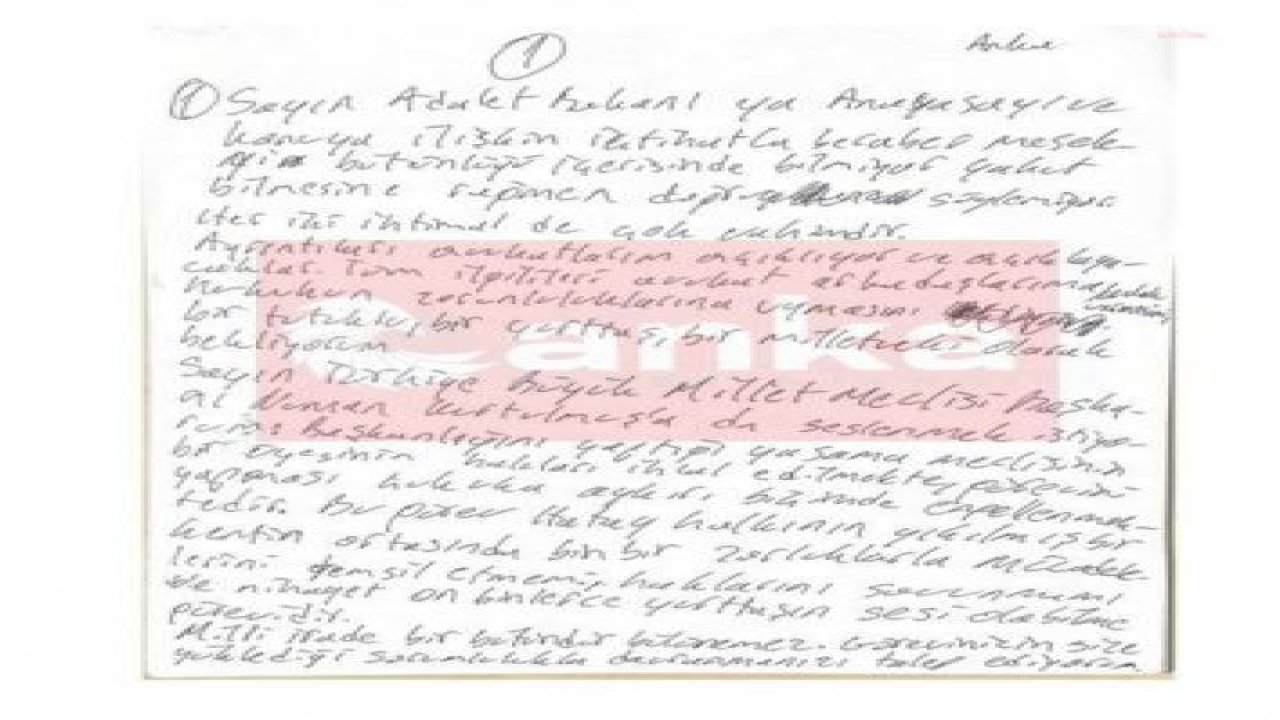 1
① Sayın Adalet Bakanı ya Anayasayı ve
konuya ilişkin içtihatla beraber mesele-
yi bütünlüğü içerisinde bilmiyor yahut
bilmesine rağmen doğru söylemiyor.
Her iki ihtimal de çok vahimdir.
Ayrıntıları avukatlarım açıklıyor ve açıklaya-
caklar. Tüm ilgilileri avukat arkadaşlarıma
hukukun zorunluluklarına uyması
bir tutuklu, bir yurttaş, bir milletvekili olarak
bekliyorum.
Sayın Türkiye Büyük Millet Meclisi Başka-
nı Numan Kurtulmuş'a da seslenmek istiyo-
rum. Başkanlığını yaptığı yasama meclisinin
bir üyesinin hakları ihlal edilmekte, görevini
yapması hukuka aykırı biçimde engellenmek-
tedir. Bu görev Hatay halkının yıkılmış bir
kentin ortasında binbir zorluklarla mücade-
lerini temsil etmem, haklarını savunmam
ve nihayet on binlerce yurttaşın sesi olabilme
görevidir.
Milli irade bir bütündür bölünemez. Görevinizin size
yüklediği sorumlulukla davranmanızı talep ediyorum
anka